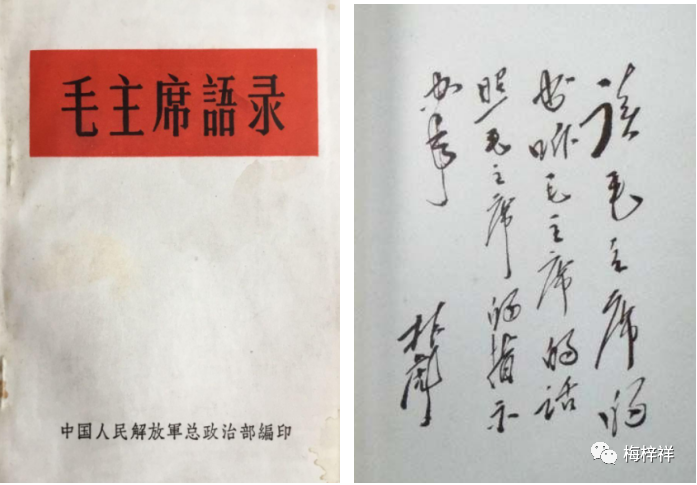 毛主席語录
中国人民解放軍总政治部編印
读毛主席的
书听毛主席的话
照毛主席的指示
办事
林彪
梅梓祥